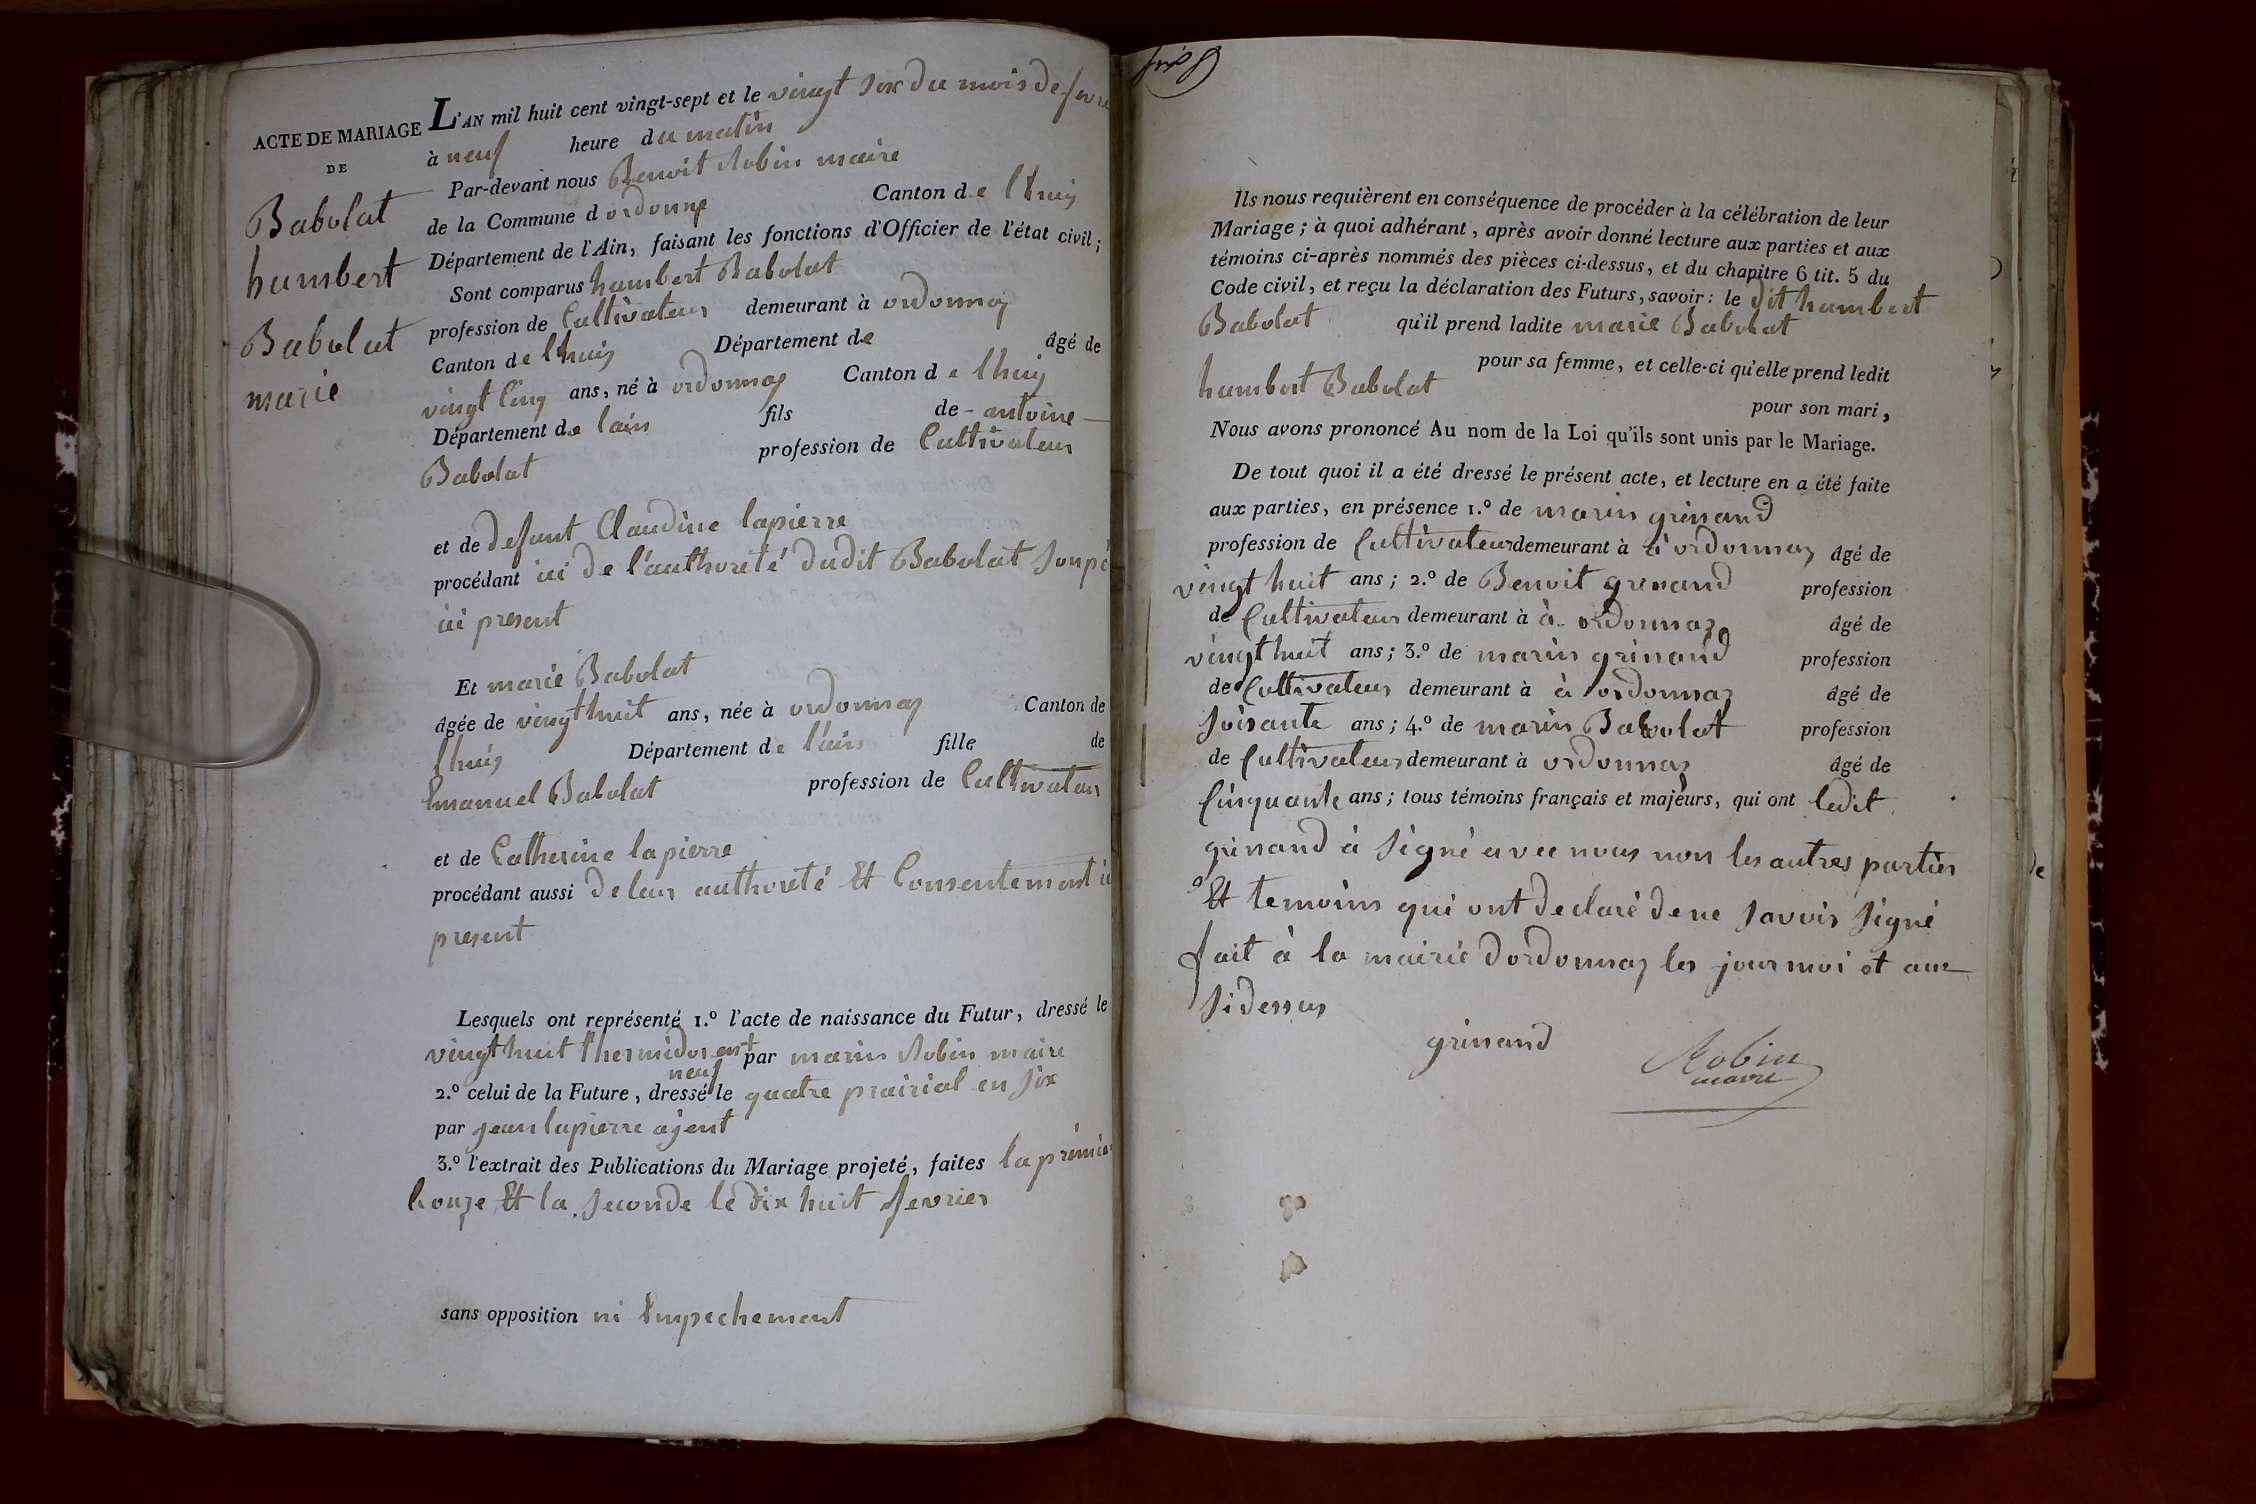 ACTE DE MARIAGE
DE
Babolat
humbert
Babolat
marie
L'AN mil huit cent vingt-sept et le vingt six du mois de fevre
à neuf heure du matin
Par-devant nous Benoit Robin maire
de la Commune d ordonne Canton de lhuis
Département de l'Ain, faisant les fonctions d'Officier de l'état civil;
Sont comparus humbert Babolat
profession de Cultivateur demeurant à ordonnaz
Canton de lhuis Département de âgé de
vingt Cinq ans, né à ordonnaz Canton de lhuis
Département de lain fils de - antoine
Babolat profession de Cultivateur
et de defunt Claudine lapierre
procédant ici de l'authorité dudit Babolat son pé
ici present
Et marie Babolat
âgée de vingt huit ans, née à ordonnaz Canton de
lhuis Département de l'ain fille de
Emanuel Babolat profession de Cultivateur
et de Catherine lapierre
procédant aussi de leur authorité Et Consentement ici
present
Lesquels ont représenté 1.º l'acte de naissance du Futur, dressé le
vingt huit thermidor ant par marin Robin maire
neuf
2.º celui de la Future, dressé le quatre prairial en six
par jean lapierre agent
3.º l'extrait des Publications du Mariage projeté, faites la prémier
honze Et la seconde le dix huit fevrier
sans opposition ni Empechement
Ils nous requièrent en conséquence de procéder à la célébration de leur
Mariage; à quoi adhérant, après avoir donné lecture aux parties et aux
témoins ci-après nommés des pièces ci-dessus, et du chapitre 6 tit. 5 du
Code civil, et reçu la déclaration des Futurs, savoir: le dit humbert
Babolat qu'il prend ladite marie Babolat
pour sa femme, et celle-ci qu'elle prend ledit
humbert Babolat
pour son mari,
Nous avons prononcé Au nom de la Loi qu'ils sont unis par le Mariage.
De tout quoi il a été dressé le présent acte, et lecture en a été faite
aux parties, en présence 1.º de marin grinand
profession de Cultivateur demeurant à à ordonnaz âgé de
vingt huit ans; 2.º de Benoit grinand profession
de Cultivateur demeurant à à ordonnaz âgé de
vingt huit ans; 3.º de marin grinand profession
de Cultivateur demeurant à à ordonnaz âgé de
soisante ans; 4.º de marin Babolat profession
de Cultivateur demeurant à ordonnaz âgé de
Cinquante ans; tous témoins français et majeurs, qui ont ledit
grinand à signé avec nous non les autres parties
Et temoins qui ont declaré de ne savoir signé
fait à la mairie dordonnaz les jour moi et an
sidessus
grinand
Robin
maire